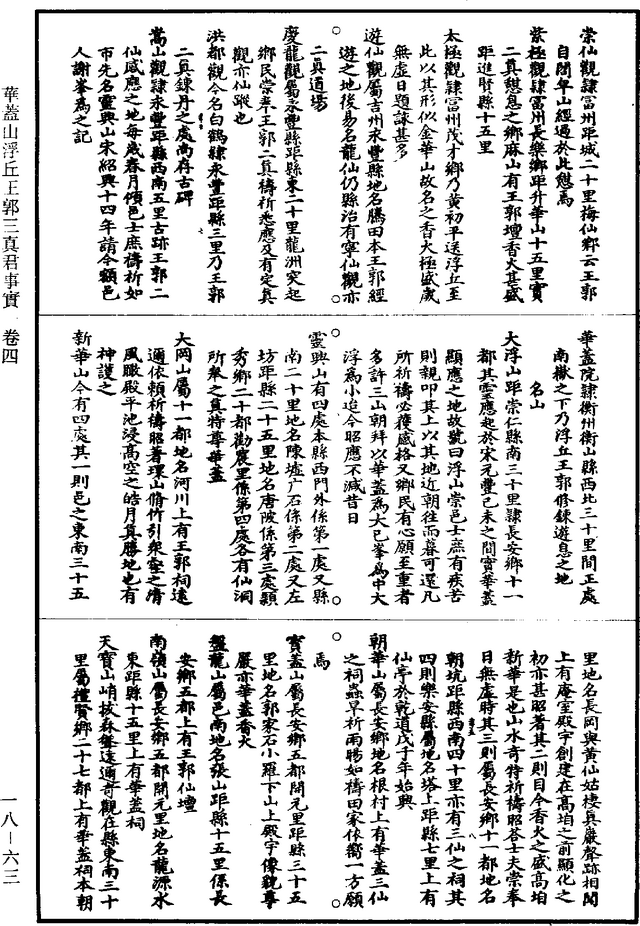 華蓋山浮丘王郭三真君事實 卷四
一八－六三
崇仙觀隸富州距城二十里梅仙鄉云王郭
自閤皁山經過於此憇焉
紫極觀隸富州長樂鄉距升華山十五里實
二真憇息之鄉麻山有王郭壇香火甚盛
距進賢縣十五里
太極觀隸富州茂才鄉乃黃初平送浮丘至
此以其形似金華山故名之香火極盛歲
無虛日題詠甚多
遊仙觀屬吉州永豐縣地名騰田本王郭經
遊之地後易名龍仙仍縣治有寧仙觀亦
二真道場
慶龍觀屬永豐縣距縣東二十里龍洲突起
鄉民崇奉王郭二真禱祈悉應及有定真
觀亦仙蹤也
洪都觀今名白鶴隸永豐距縣三里乃王郭
二真鍊丹之處尚存古碑
嵩山觀隸永豐距縣西南五里古跡王郭二
仙感應之地每歲春月傾邑士庶禱祈如
市先名靈興山宋紹興十四年請今額邑
人謝峯為之記
華蓋院隸衡州衡山縣西北三十里間正處
南嶽之下乃浮丘王郭修鍊遊息之地
名山
大浮山距崇仁縣南三十里隸長安鄉十一
都其靈應起於宋元豐己未之間實華蓋
顯應之地故號曰浮山崇邑士庶有疾苦
則親叩其上以其地近朝往而暮可還凡
所祈禱必獲感格又鄉民有心願至重者
多許三山朝拜以華蓋為大巴峯為中大
浮為小迨今昭應不減昔日
靈興山有四處本縣西門外係第一處又縣
南二十里地名陳墟广石係第二處又左
坊距縣二十五里地名唐陂係第三處頴
秀鄉二十都勸農里係第四處各有仙洞
所奉之真特尊華蓋
大岡山屬十一都地名河川上有王郭祠遠
邇依頼祈禱昭著環山脩竹引衆壑之清
風瞰殿平池浸高空之皓月真勝地也有
神護之
新華山今有四處其一則邑之東南三十五
里地名長岡與黃仙姑棲真巖聲跡相聞
上有庵室殿宇創建在高垍之前顯化之
初亦甚昭著其二則目今香火之盛高垍
新華是也山水奇特祈禱昭荅士夫崇奉
日無虛時其三則屬長安鄉十一都地名
朝坑距縣西南四十里亦有三仙之祠其
四則樂安縣屬地名塔上距縣七里上有
仙亭於乾道戊子年始興
朝華山屬長安鄉地名根村上有華蓋三仙
之祠蟲旱祈雨暘如禱田家依嚮一方願
焉
寶蓋山屬長安鄉五都開元里距縣三十五
里地名郭家石小羅下山上殿宇像貌尊
嚴亦華蓋香火
盤龍山屬邑南地名張山距縣十五里係長
安鄉五都上有王郭仙壇
南嶺山屬長安鄉五都開元里地名龍源水
東距縣十五里上有華蓋祠
天寶山峭拔森聳遠通奇觀在縣東南三十
里屬禮賢鄉二十七都上有華蓋祠本朝